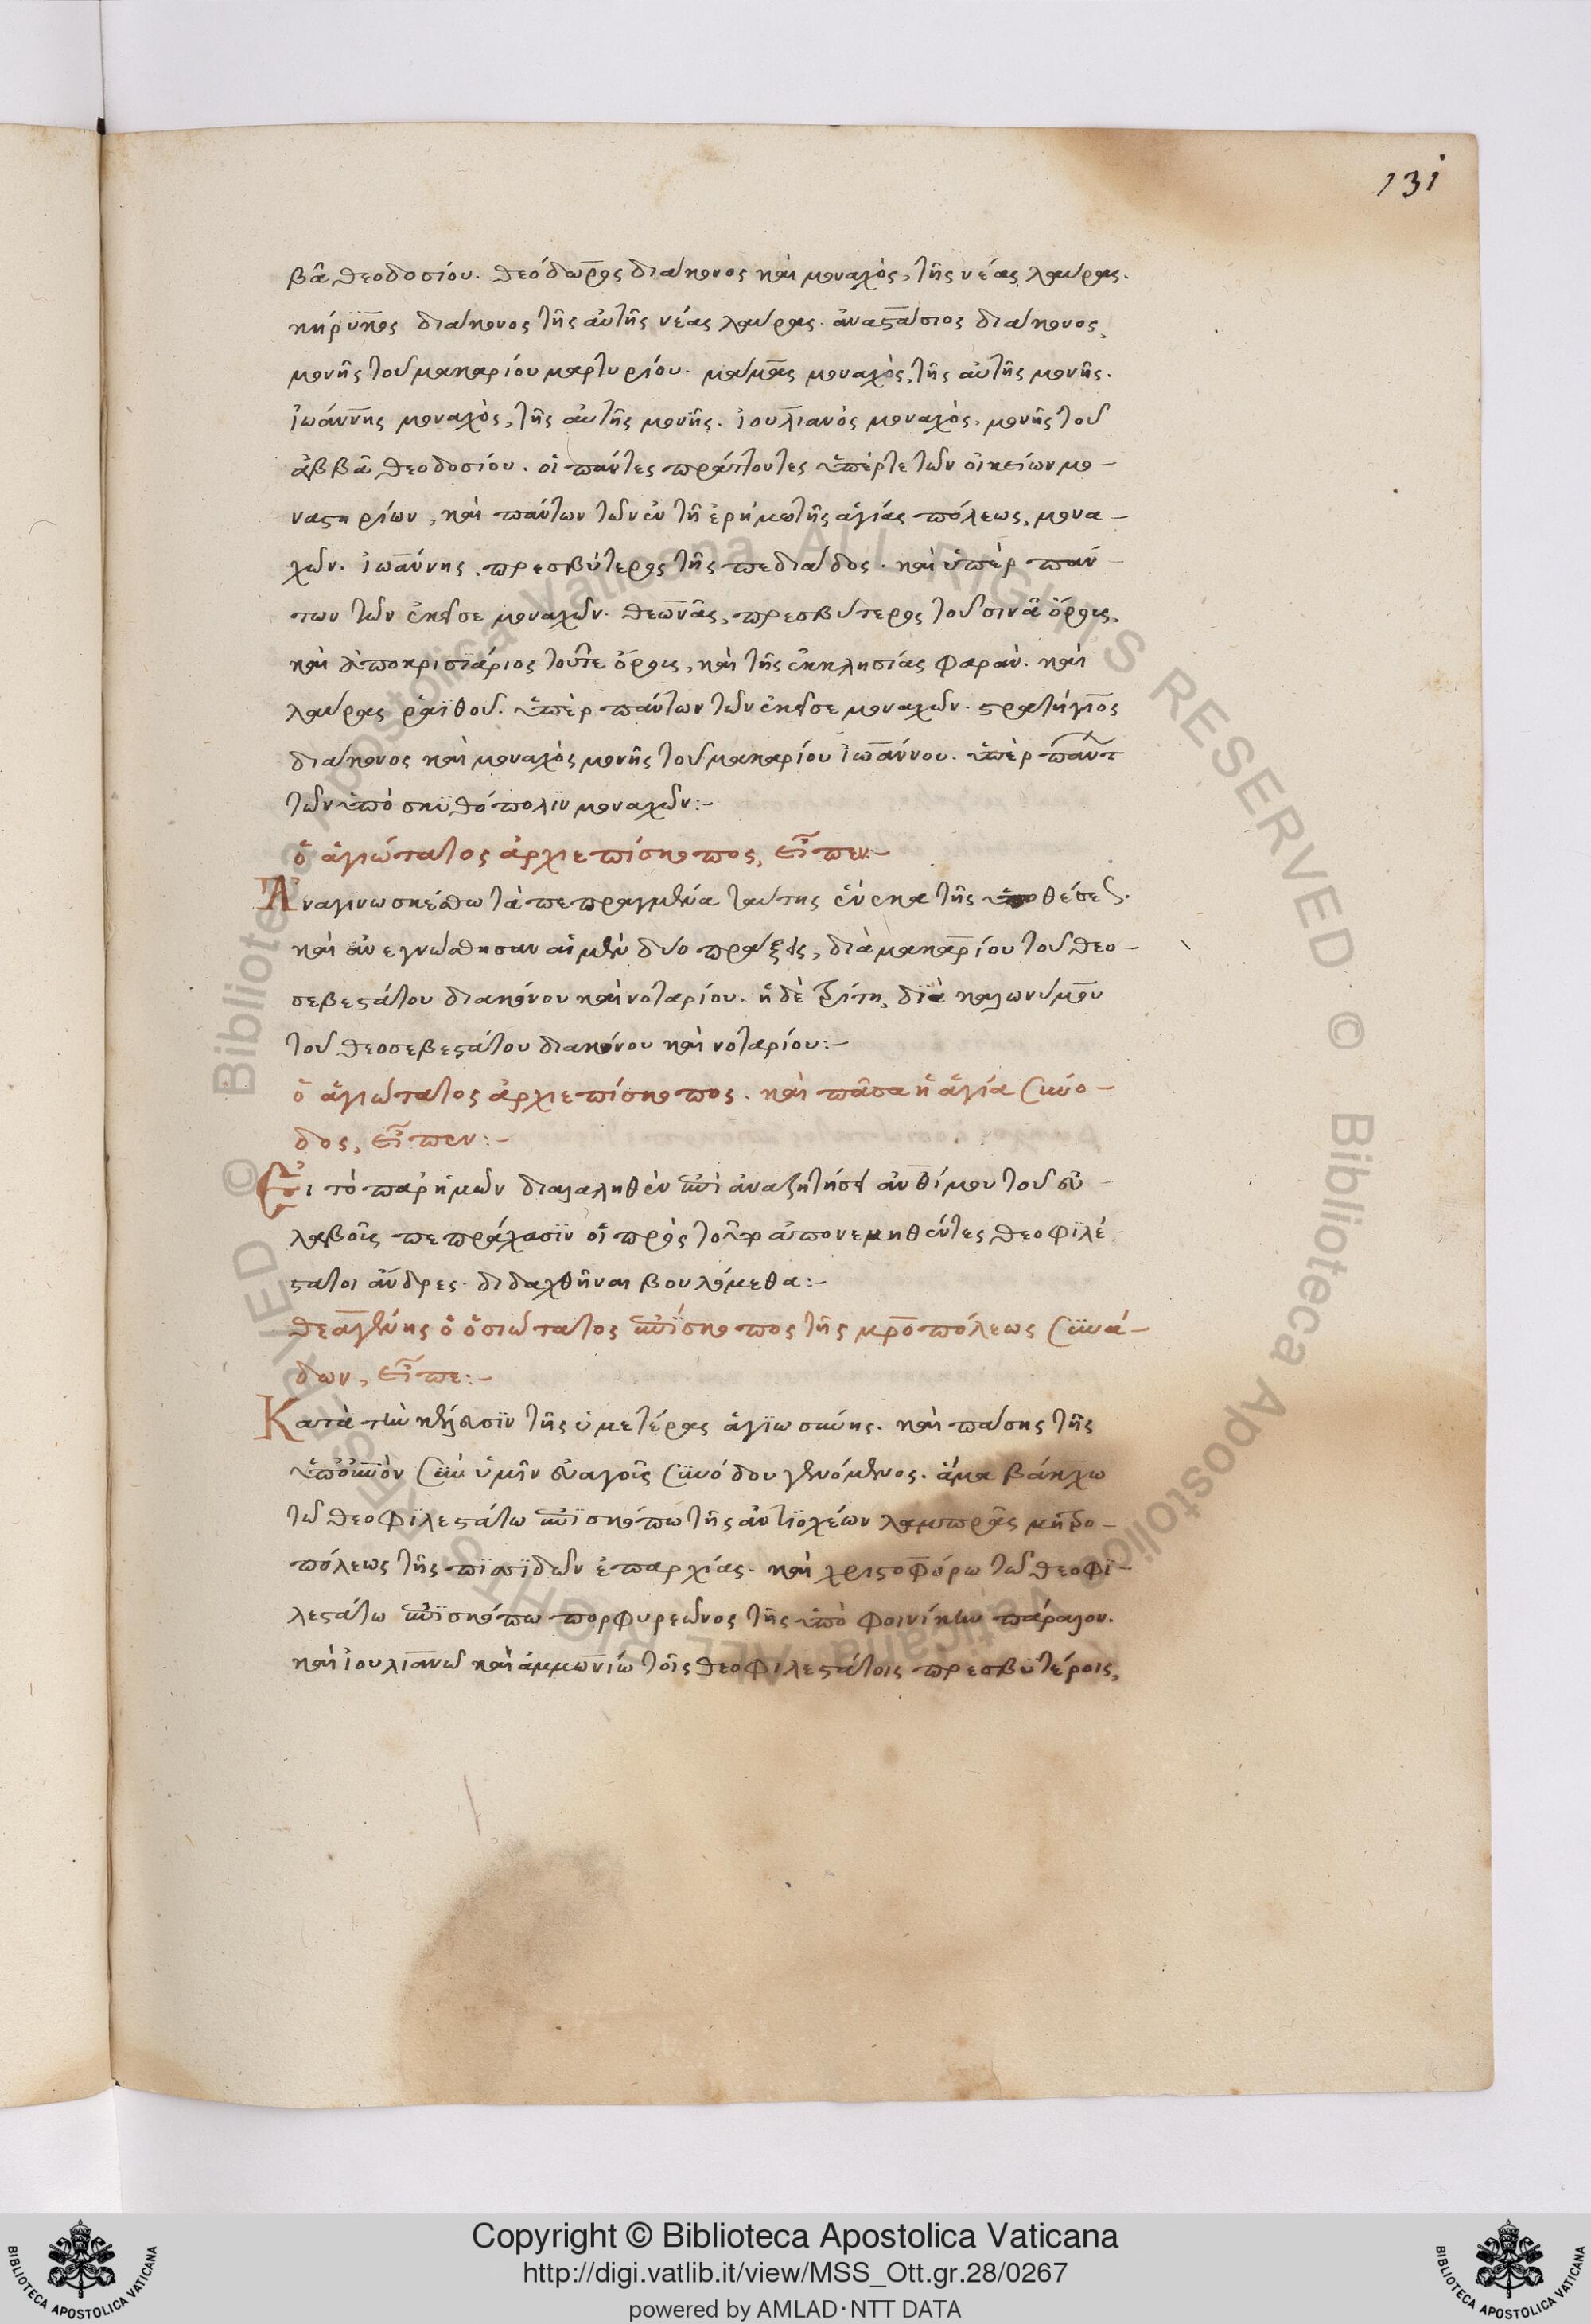 131
βᾶ θεοδοσίου. θεόδωρος διάκονος καὶ μοναχὸς, τῆς νέας λαύρας.
κήρϋκος διάκονος τῆς αὐτῆς νέας λαύρας. ἀναστάσιος διάκονος,
μονῆς τοῦ μακαρίου μαρτυρίου. μάμας μοναχὸς, τῆς αὐτῆς μονῆς.
ἰωάννης μοναχὸς, τῆς αὐτῆς μονῆς. ἰουλιανὸς μοναχὸς, μονῆς τοῦ
ἀββᾶ θεοδοσίου. οἱ πάντες πράττοντες ὑπέρτε τῶν οἰκείων μο-
ναστηρίων, καὶ πάντων τῶν ἐν τῆ ἐρήμω τῆς ἁγίας πόλεως, μονα-
χῶν. ἰωάννης, πρεσβύτερος τῆς πεδιάδος. καὶ ὑπὲρ πάν-
των τῶν ἐκεῖσε μοναχῶν. θεωνᾶς, πρεσβύτερος τοῦ σινᾶ ὄρους,
καὶ ἀποκρισϊάριος τοῦτε ὄρους, καὶ τῆς ἐκκλησίας φαράν. καὶ
λαύρας ῥαϊθοῦ. ὑπὲρ πάντων τῶν ἐκεῖσε μοναχῶν. στρατήγιος
διάκονος καὶ μοναχὸς μονῆς τοῦ μακαρίου ἰωάννου. ὑπὲρ πάντ
τῶν ὑπὸ σκϋθόπολϊν μοναχῶν:-
ὁ ἁγιώτατος ἀρχιεπίσκοπος, εἶπεν:-
Ἀναγϊνωσκέσθω τὰ πεπραγμένα ταύτης ἕνεκα τῆς ὑποθέσεως.
καὶ ἀνεγνώσθησαν αἱ μὲν δύο πράξεις, διὰ μακαρίου τοῦ θεο-
σεβεστάτου διακόνου καὶ νοταρίου. ἡ δὲ τρίτη, δϊὰ καλωνύμου
τοῦ θεοσεβεστάτου διακόνου καὶ νοταρίου:-
ὁ ἁγιώτατος ἀρχιεπίσκοπος. καὶ πᾶσα ἡ ἁγία σύνο-
δος, εἶπεν:-
Εἰ τὸ παρἡμῶν διαλαληθὲν ἐπὶ ἀναζητήσει ἀνθίμου τοῦ εὐ-
λαβοῦς πεπράχασϊν οἱ πρὸς τοῦτο ἀπονεμηθέντες θεοφϊλέ-
στατοι ἄνδρες. διδαχθῆναι βουλόμεθα:-
θεαγένης ὁ ὁσιώτατος ἐπίσκοπος τῆς μροπόλεως σϋνά-
δων, εἶπε:-
Κατὰ τὴν κέλευσϊν τῆς ὑμετέρας ἁγϊωσύνης. καὶ πάσης τῆς
ὑπὸ σὺν ὑμῖν εὐαγοῦς σϋνόδου γενόμενος. ἅμα βάκχω
τῶ θεοφϊλεστάτω ἐπϊσκόπω τῆς ἀντϊοχέων λαμπρᾶς μητρο-
πόλεως τῆς πϊσϊδῶν ἐπαρχίας. καὶ χριστοφόρω τῶ θεοφϊ-
λεστάτω ἐπϊσκόπω πορφυρεῶνος τῆς ὑπὸ φοινίκην παράλου.
καὶ ἰουλιανῶ καὶ ἀμμωνίω τοῖς θεοφιλεστάτοις πρεσβϋτέροις,
Copyright © Biblioteca Apostolica Vaticana
http://digi.vatlib.it/view/MSS_Ott.gr.28/0267
powered by AMLAD·NTT DATA